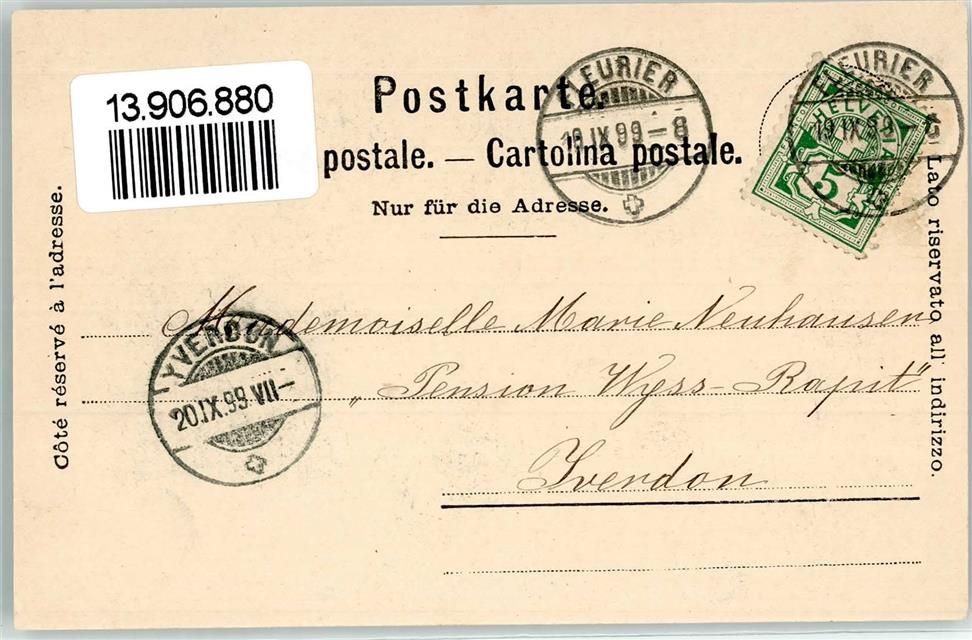 13.906.880
Postkarte.
postale. — Cartolina postale.
Nur für die Adresse.
Côté réservé à l'adresse.
Lato riservato all' indirizzo.
FLEURIER
19.IX.99-8
FLEURIER
19.IX.99
HELVETIA
5
YVERDON
20.IX.99.VII-
Mademoiselle Marie Neuhausen
„Pension Wyss-Rapit"
Yverdon